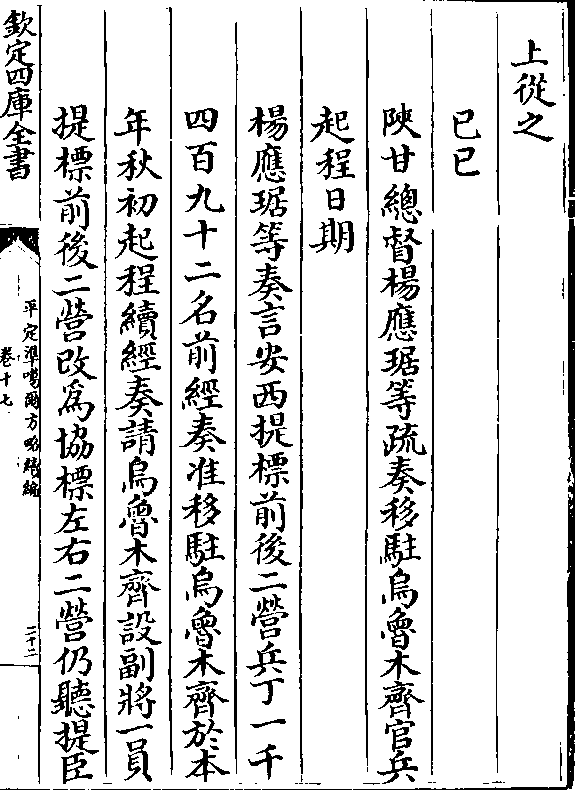 上從之
己巳
陝甘總督楊應琚等疏奏移駐烏魯木齊官兵
起程日期
楊應琚等奏言安西提標前後二營兵丁一千
四百九十二名前經奏准移駐烏魯木齊於本
年秋初起程續經奏請烏魯木齊設副將一員
提標前後二營改為協標左右二營仍聽提臣
欽定四庫全書
平定準噶爾方略續編
卷十七
二十二